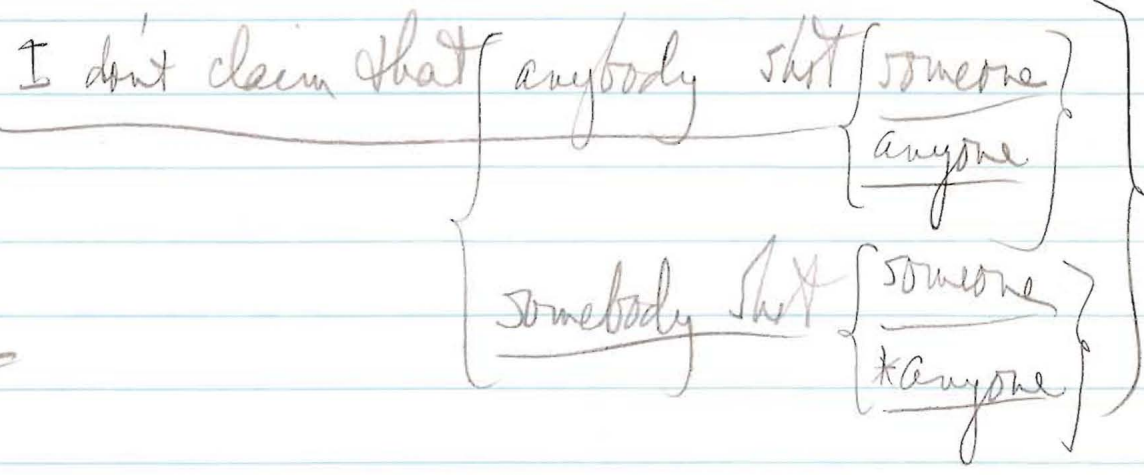 I don't claim that { anybody shot { someone }
anyone
somebody shot { someone }
*anyone